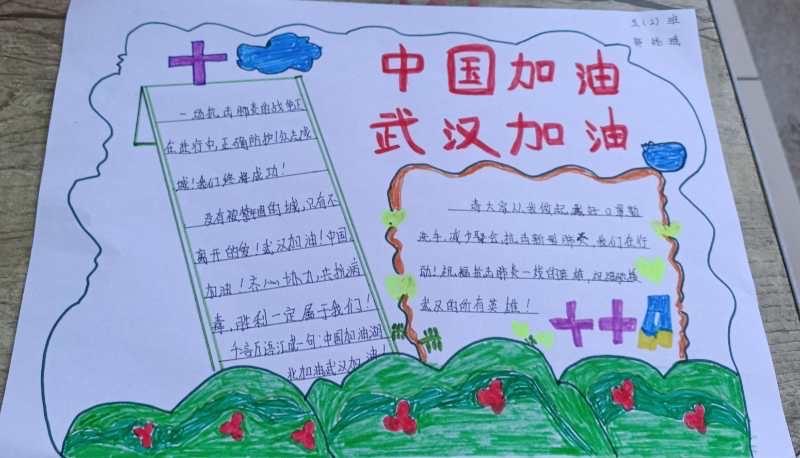 五(2)班
中国加油
武汉加油
一场抗击肺炎的战争正
在进行中,正确防护!众志成
城!我们终将成功!
没有被禁锢的城,只有不
离开的爱!武汉加油!中国
加油!齐心协力,共抗病
毒,胜利一定属于我们!
千言万语汇成一句:中国加油湖
北加油武汉加油!
请大家从我做起,戴好口罩勤
洗手,减少聚会,抗击新型肺炎,我们在行
动!祝福抗击肺炎一线的英雄,祝福驰援
武汉的所有英雄!